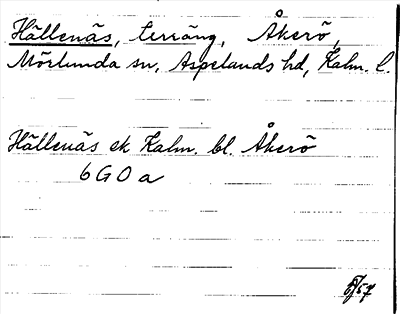 Hällenäs, terräng, Åkerö,
Mörlunda sn, Aspelands hd, Kalm. l.
Hällenäs ek Kalm. bl. Åkerö
6G0a